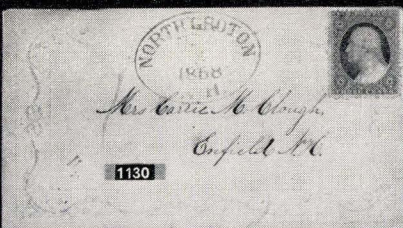 NORTH GROTON
1868
11
Mrs Carrie M. Clough,
Enfield N.H.
1130